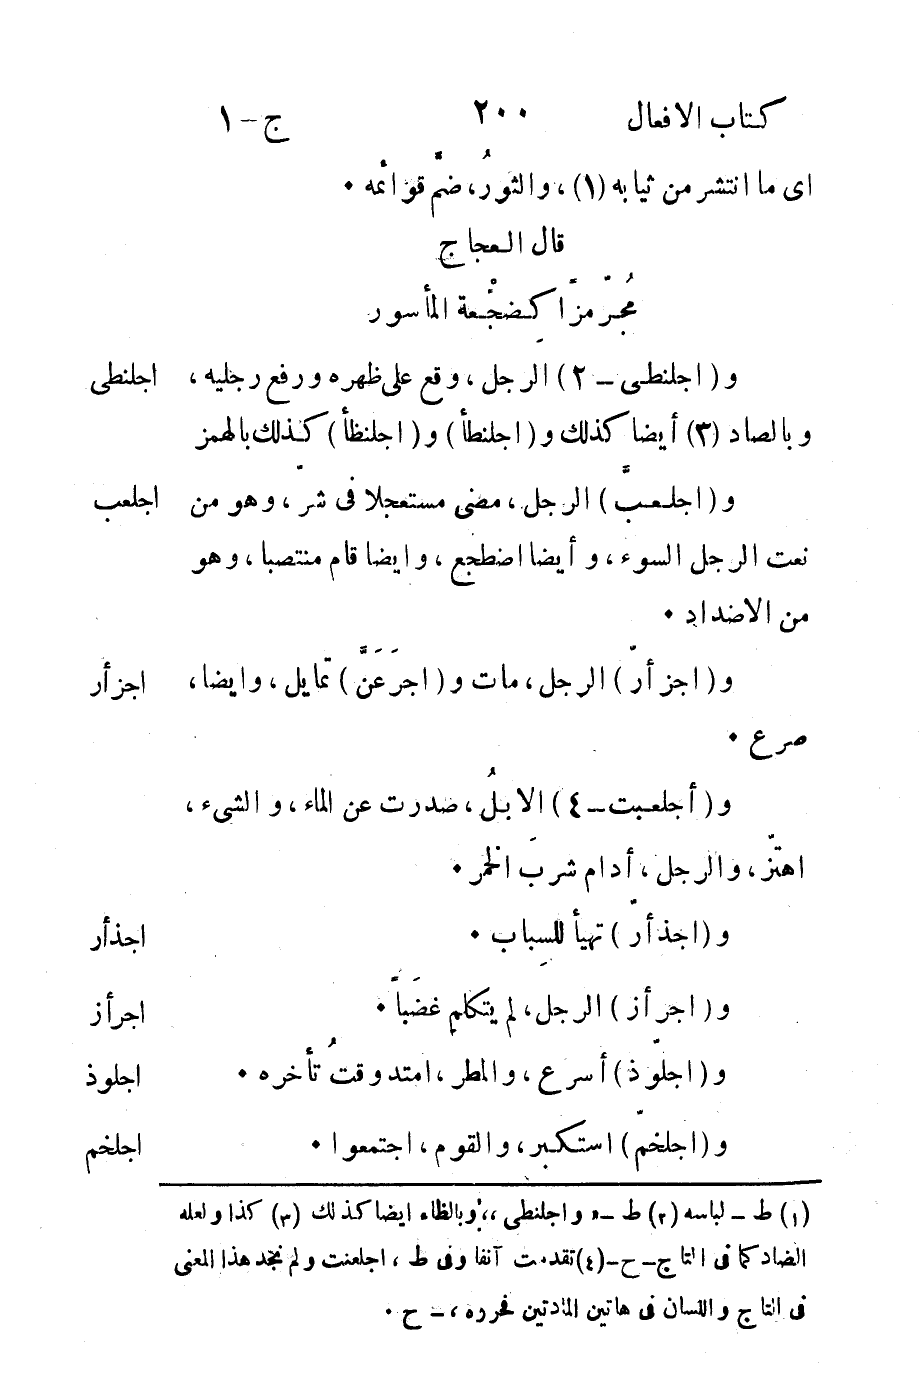 كتاب الافعال ٢٠٠ ج-١
اى ما انتشر من ثيابه (١)، والثورُ، ضمَّ قوائمه •
قال العجاج
مُجرّمزًا كضجْعة المأسور
و (اجلنطى – ٢) الرجل، وقع على ظهره ورفع رجليه، اجلنطى
وبالصاد (٣) أيضا كذلك و (اجلنطأ) و (اجلنظأ) كذلك بالهمز
و (اجلعبَّ) الرجل، مضى مستعجلا فى شرّ، وهو من اجلعب
نعت الرجل السوء، و أيضا اضطجع، وايضا قام منتصبا، وهو
من الاضداد •
و (اجزأرّ) الرجل، مات و (اجرَعَنَّ) تمايل، وايضا، اجزأر
صرع •
و (أجلعبت–٤) الابلُ، صدرت عن الماء، و الشىء،
اهتزّ، والرجل، أدام شربَ الخمر •
و (اجذأرّ) تهيأ للسِباب • اجذأر
و (اجرأز) الرجل، لم يتكلم غضَباً • اجرأز
و (اجلوّذ) أسرع، والمطر، امتد وقتُ تأخره • اجلوذ
و (اجلخمّ) استكبر، والقوم، اجتمعوا • اجلخم
(١) ط – لباسه (٢) ط –« و اجلنطى،، وبالظاء ايضا كذلك (٣) كذا ولعله
الضاد كما فى التاج–ح–(٤) تقدمت آنفا وفى ط، اجلعنت ولم نجد هذا المعنى
فى التاج واللسان فى هاتين المادتين فحرره، – ح •